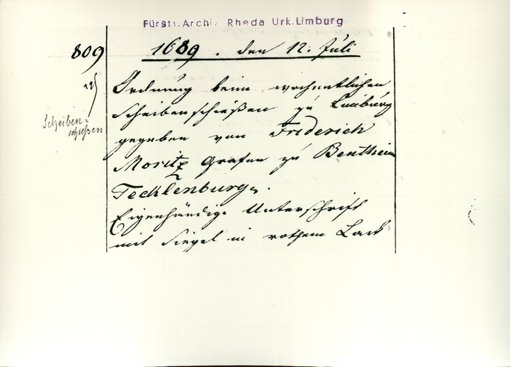 Fürstl. Archiv Rheda Urk. Limburg
809
1689. den 12. Juli
Scheiben-
schießen
Ordnung beim wochentlichen
Scheibenschießen zu Limburg
gegeben von Friderich
Moritz Grafen zu Bentheim
Tecklenburg.
Eigenhändige Unterschrift
mit Siegel in rothem Lack